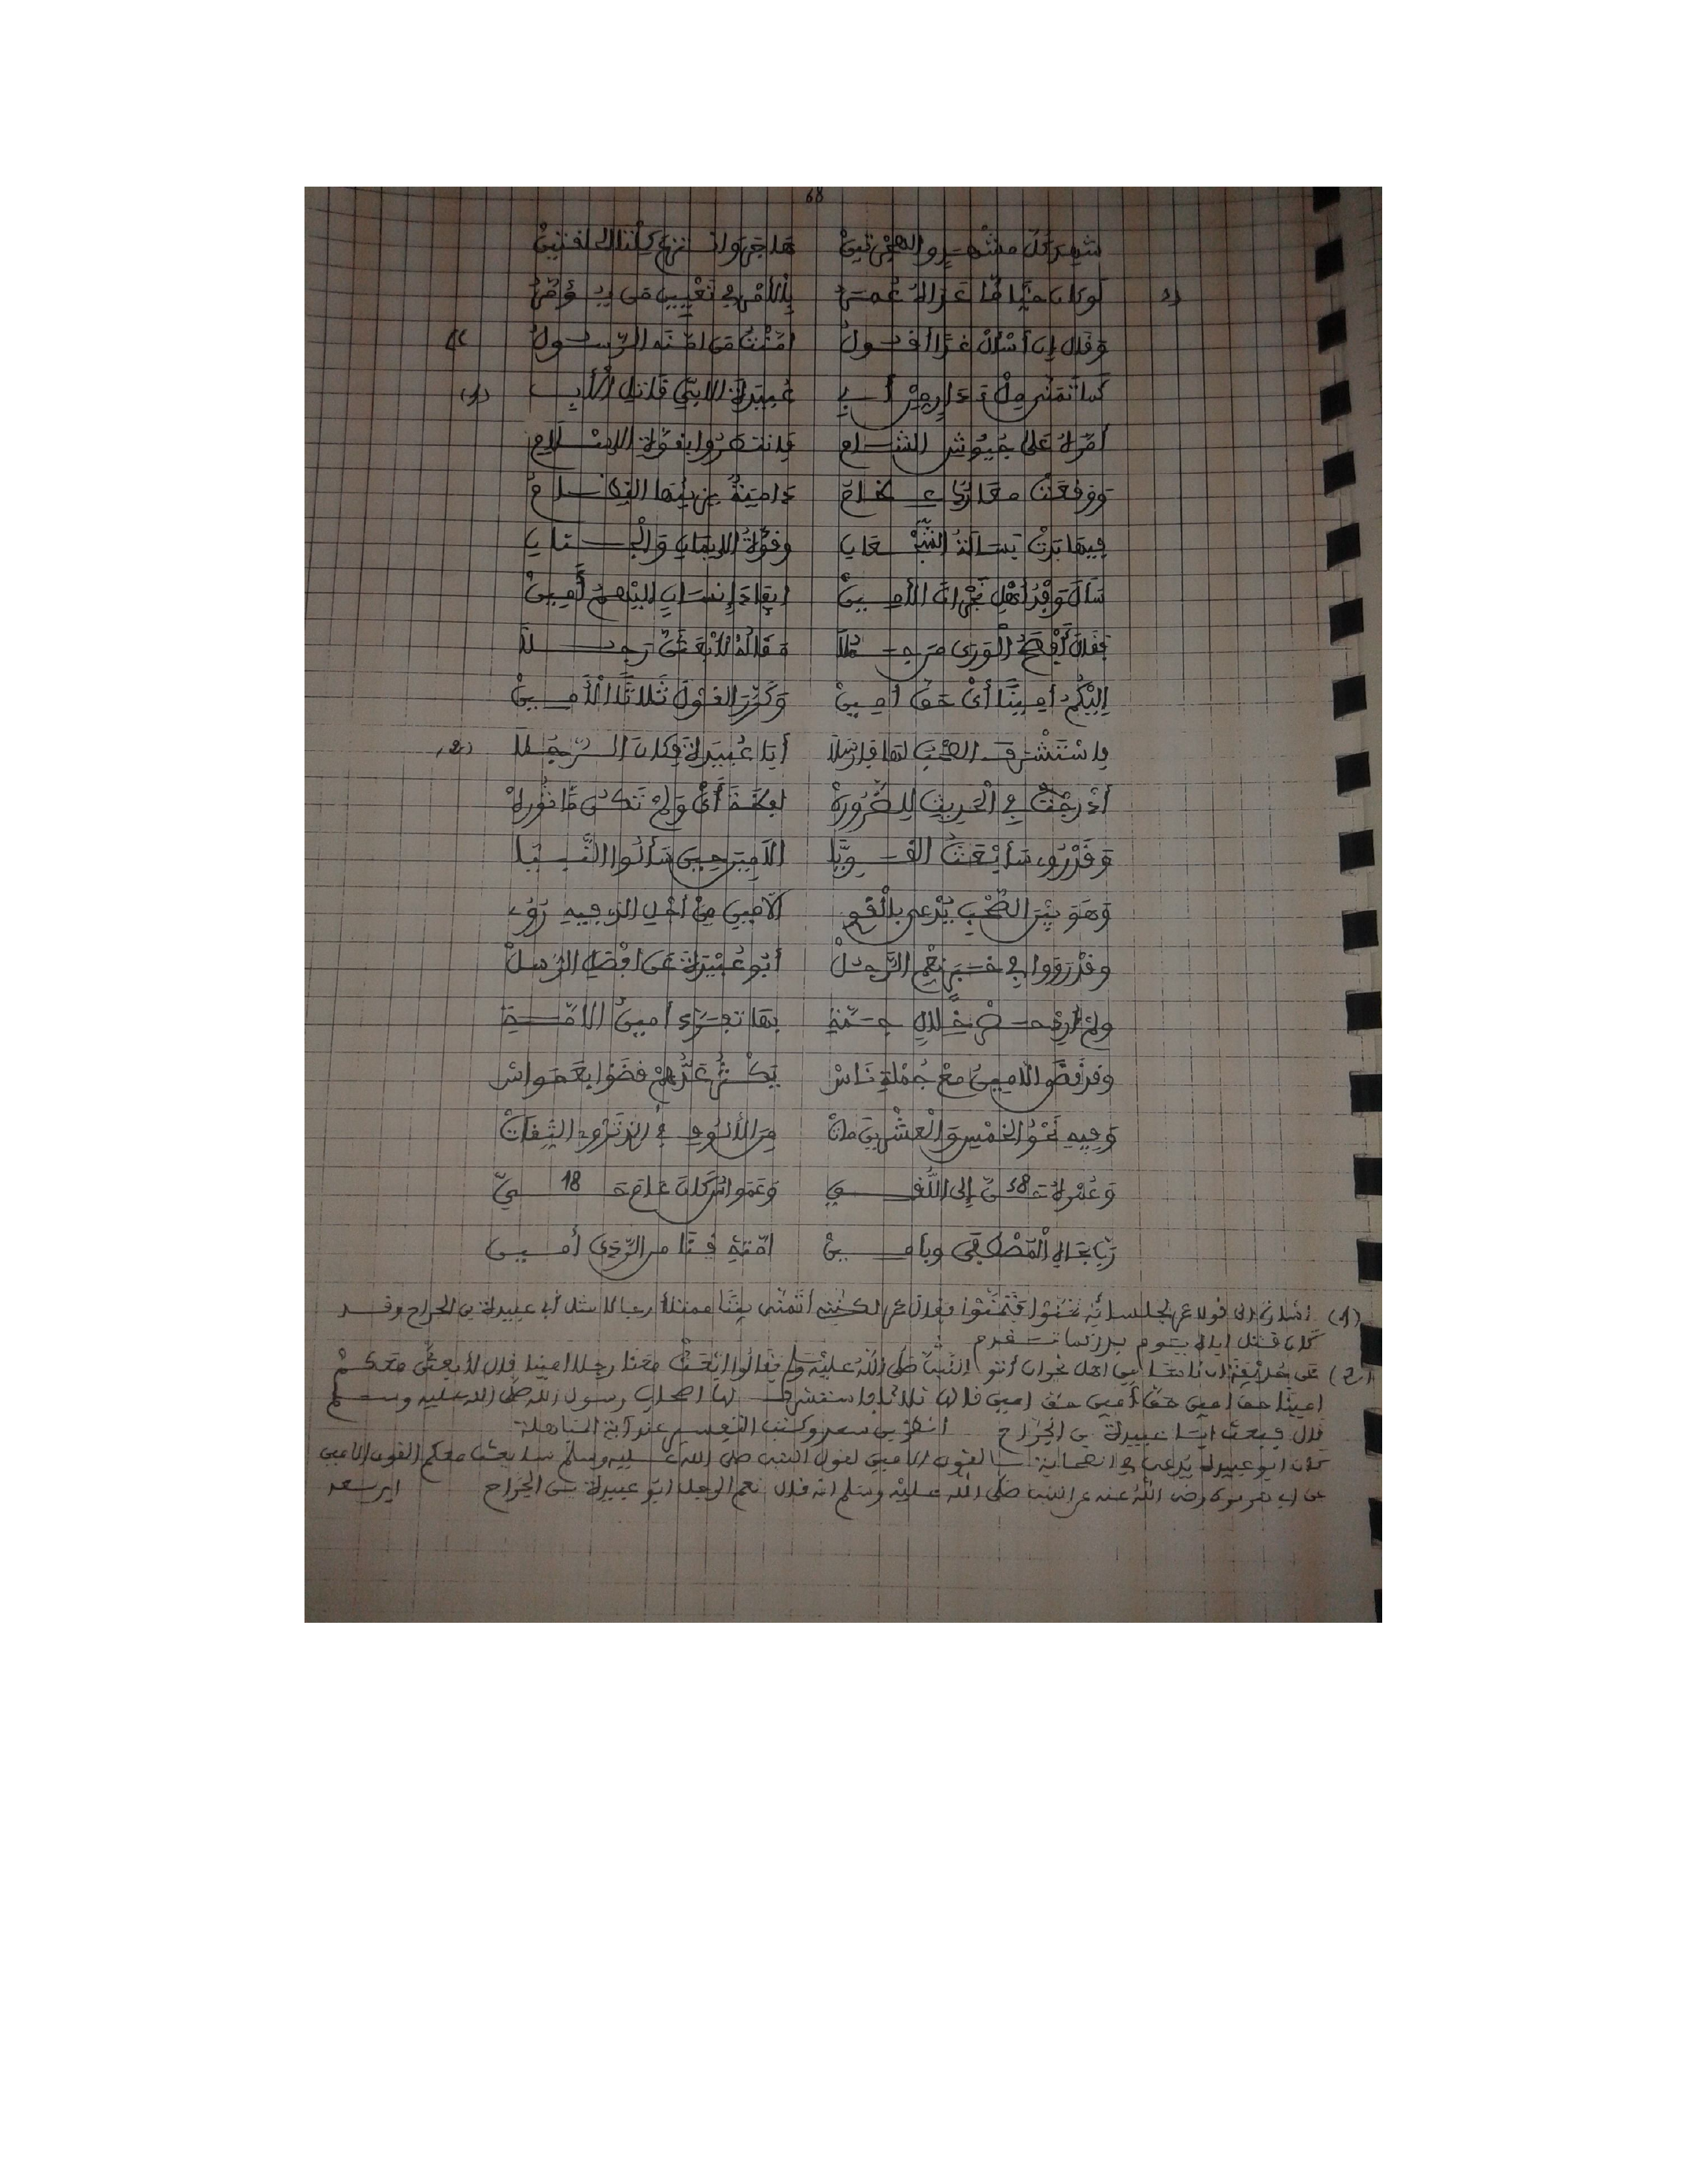 68
شهد كل مشهد والهجرتين هاجر وانتزع كلتا الحلقتين
لو كان حيا ما عداه عمر بالأمر في تعيين من يؤمر
وقال إن أسأل غدا أقول أمنت من امنه الرسول
كما تمنى ملء دار من أبي عبيدة الابن قاتل الأب (1)
أمره على جيوش الشام فانتصروا بقوة الاسلام
ووقعت معارك عظام دامية يزينها النظام
فيها بدت بسالة الشجعان وقوة الايمان والجنان
سأل وفد أهل نجران الأمين ايفاد إنسان اليهم أمين
فقال أفصح الورى مرتجلا مقاله لأبعثن رجلا
اليكم أمينا أي حق أمين وكرر القول ثلاثا الأمين
فاستشرف الصحب لها فارسلا أبا عبيدة فكان الرجلا (2)
أدرجت في الحديث للضرورة لفظة أي ولم تكن ماثورة
وقد روى سأبعث القويا الأمين حين سألوا النبيا
وهو بين الصحب يدعى بالقوي الأمين من أجل الذي فيه روي
وقد رووا في خبر نعم الرجل أبو عبيدة عن افضل الرسل
ولم أرد حصر خلال جمة بها تجرد أمين الامة
وقد قضى الامين مع جملة ناس يكثر عدهم قضوا بعمواس
وفيه نحو الخمس والعشرين مات من الألوف في الذي تروي الثقات
وعمره حن 58 إلى اللقي وعمواس كان عام حي 18
رب بجاه المصطفى وبامين امة قنا من الردى أمين
(1) اشارة الى قول عمر لجلسائه تمنوا فتمنوا فقال عمر لكني أتمنى بيتا ممتلأ رجالا مثل أبي عبيدة بن الجراح وقد
كان قتل اباه يوم بدر كما تقدم
(2) عن حذيفة ان ناسا من اهل نجران أتوا النبي صلى الله عليه وسلم فقالوا ابعث معنا رجلا امينا قال لأبعثن معكم
امينا حق امين حق أمين حق امين قالها ثلاثا فاستشرف لها اصحاب رسول الله صلى الله عليه وسلم
قال فبعث ابا عبيدة بن الجراح انظر بن سعد وكتب التفسير عند آية المباهلة
كان ابو عبيدة يدعى في الصحابة بالقوي الامين لقول النبي صلى الله عليه وسلم سابعث معكم القوي الامين
عن ابي هريرة رضى الله عنه عن النبي صلى الله عليه وسلم انه قال نعم الرجل ابو عبيدة بن الجراح ابن سعد